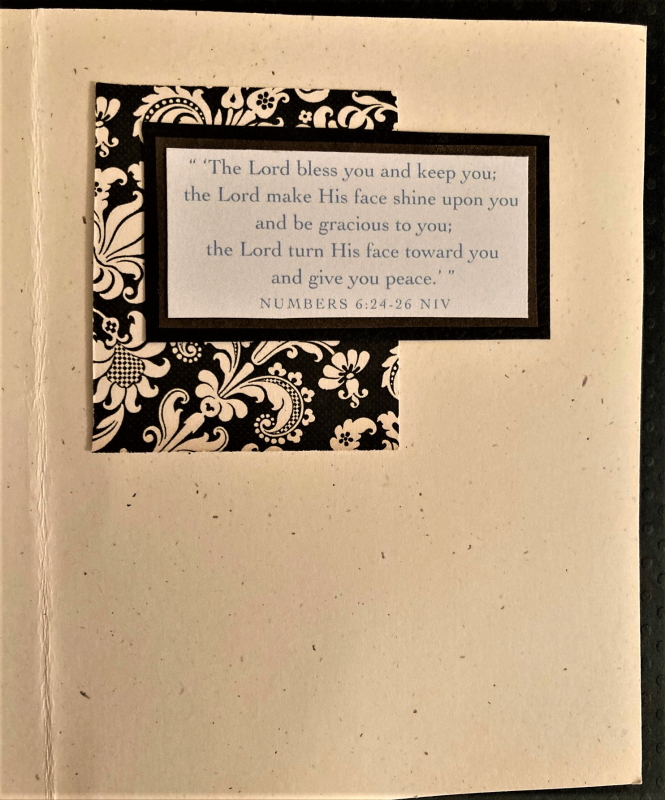 “ ‘The Lord bless you and keep you;
the Lord make His face shine upon you
and be gracious to you;
the Lord turn His face toward you
and give you peace.’ ”
NUMBERS 6:24-26 NIV